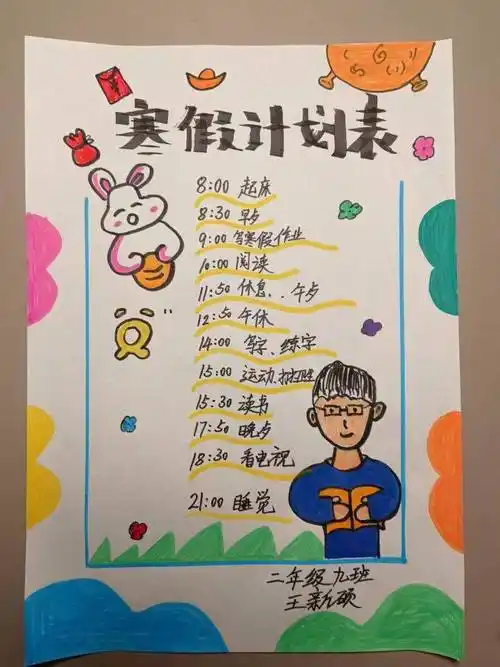 寒假计划表
8:00 起床
8:30 早歺
9:00 写寒假作业
10:00 阅读
11:50 休息、午歺
12:50 午休
14:00 写字、练字
15:00 运动、
15:30 读书
17:50 晚歺
18:30 看电视
21:00 睡觉
二年级九班
王新硕